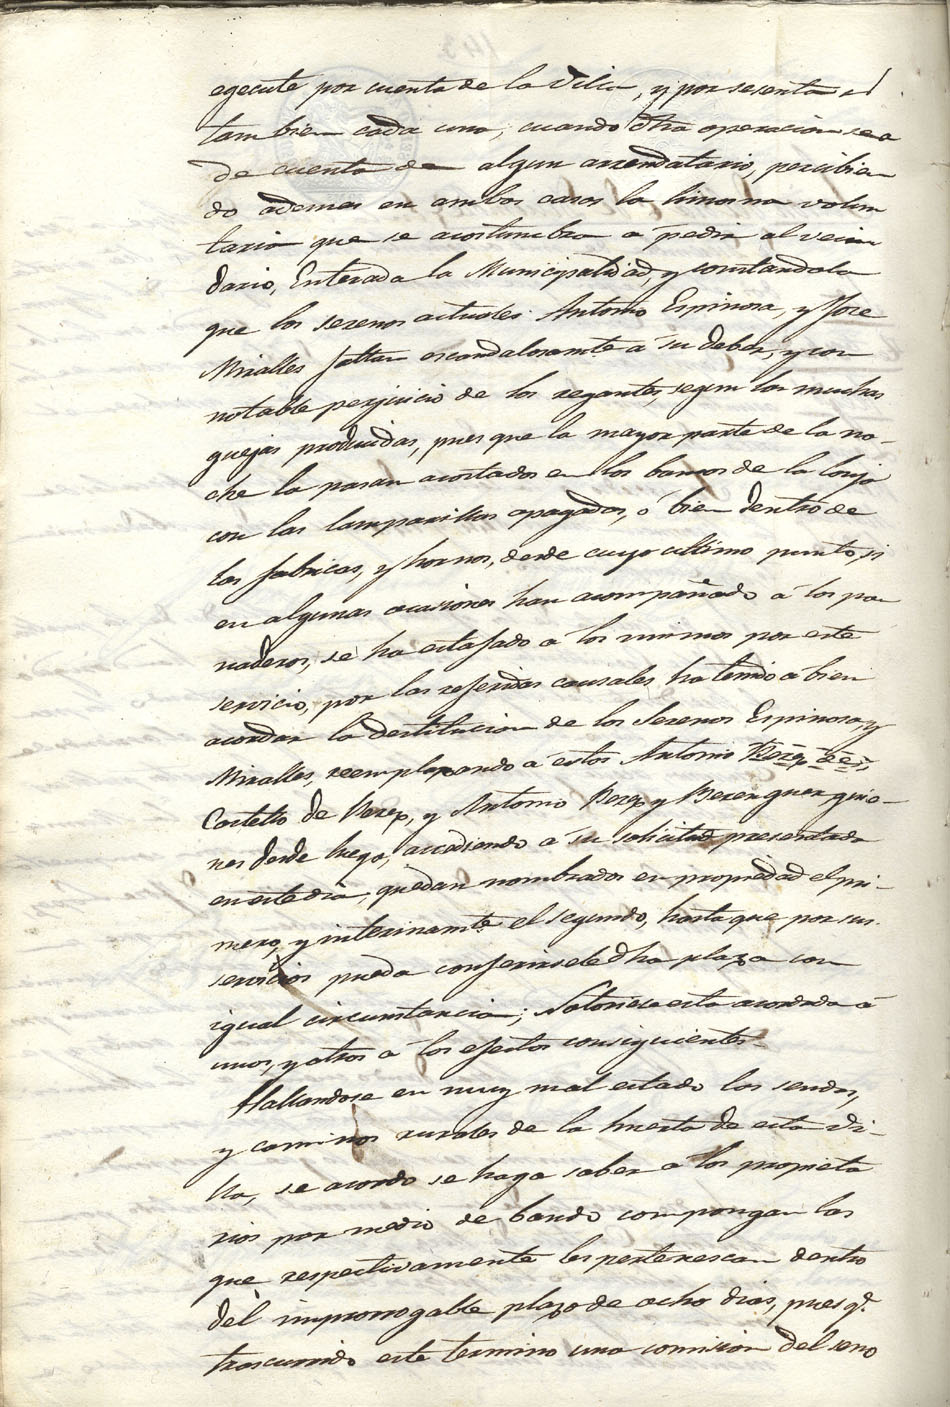 egecute por cuenta de la Villa, y por sesenta rs
tambien cada una, cuando dha operacion sea
de cuenta de algun arrendatario, percibien
do ademas en ambos casos la limosna volun
taria que se acostumbra a pedir al vecin
dario, Enterada la Municipalidad, y constandole
que los serenos actuales Antonio Espinosa, y Jose
Miralles faltan escandalosamte a su deber, y con
notable perjuicio de los regantes, segun las muchas
quejas producidas, pues que la mayor parte de la no-
che la pasan acostados en los bancos de la lonja
con las lamparillas apagadas, ó bien dentro de
las fabricas, y hornos, desde cuyo ultimo punto, si
en algunas ocasiones han acompañado á los pa
naderos, se ha estafado a los mismos por este
servicio, por las referidas causales ha tenido á bien
acordar la destitucion de los Serenos Espinosa, y
Miralles, reemplazando á estos Antonio Perez de
Costello de Perez, y Antonio Perez y Berenguer quie-
nes desde luego, accediendo á su solicitud presentada
en este dia, quedan nombrados en propiedad el pri-
mero, y interinamte el segundo, hasta que por sus
servicios pueda conferirsele dha plaza con
igual circunstancia; Notoriese esta acordada á
unos, y otros a los efectos consiguientes-
Hallandose en muy mal estado las sendas,
y caminos rurales de la huerta de esta Vi-
lla, se acordo se haga saber a los propieta
rios por medio de bando compongan las
que respectivamente les pertenescan dentro
del improrrogable plazo de ocho dias, pues qe
trascurrido este termino una comision del seno